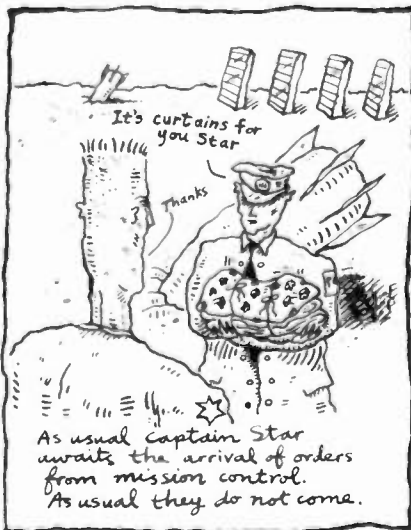 It's curtains for
you Star
Thanks
As usual Captain Star
awaits the arrival of orders
from mission control.
As usual they do not come.